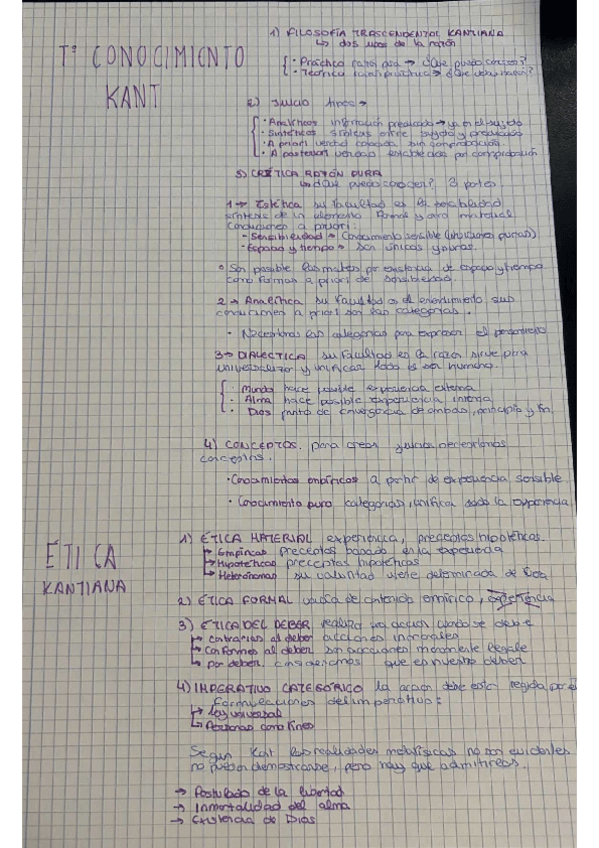 Tª CONOCIMIENTO
KANT
1) FILOSOFÍA TRASCENDENTAL KANTIANA
↳ dos usos de la razón
· Práctica razón pura → ¿Que puedo conocer?
· Teórica razón práctica → ¿Que debo hacer?
2) Juicio tipos →
· Analíticos información predicado → ya en el sujeto
· Sintéticos síntesis entre sujeto y predicado
· A priori verdad conocida sin comprobación
· A posteriori verdad establecida por comprobación
3) CRÍTICA RAZÓN PURA
↳ ¿Que puedo conocer? 3 partes.
1 → Estética su facultad es la sensibilidad
síntesis de un elemento formal y otro material
Condiciones a priori:
- Sensibilidad → Conocimiento sensible (intuiciones puras)
- Espacio y tiempo → son únicas y puras.
° Son posible las mates por existencia de espacio y tiempo
como formas a priori de sensibilidad.
2 → Analítica su facultad es el entendimiento sus
condiciones a priori son las categorías.
· Necesitamos las categorías para expresar el pensamiento
3 → DIALECTICA su facultad es la razón sirve para
universalizar y unificar todo lo ser humano.
· Mundo hace posible experiencia externa
· Alma hace posible experiencia interna
· Dios punto de convergencia de ambas, principio y fin.
4) CONCEPTOS. para crear juicios necesitamos
conceptos.
· Conocimientos empíricos a partir de experiencia sensible
· Conocimiento puro categorías, unifica toda la experiencia
ÉTICA
KANTIANA
1) ÉTICA MATERIAL experiencia, preceptos hipotéticos.
↳ Empíricas preceptos basado en la experiencia
↳ Hipotéticos preceptos hipotéticos
↳ Heterónomas su voluntad viene determinada de
2) ÉTICA FORMAL vacía de contenido empírico, experiencia
3) ÉTICA DEL DEBER realizar una acción cuando se debe
↳ Contrarias al deber acciones inmorales
↳ Conformes al deber son acciones moralmente legales
↳ por deber. consideramos que es nuestro deber
4) IMPERATIVO CATEGÓRICO la acción debe estar regida por el
Formulaciones del imperativo:
↳ Ley universal
↳ Personas como fines
Según Kant las realidades metafísicas no son evidentes
no pueden demostrarse, pero hay que admitirlos.
→ Postulado de la libertad
→ Inmortalidad del alma
→ Existencia de Dios